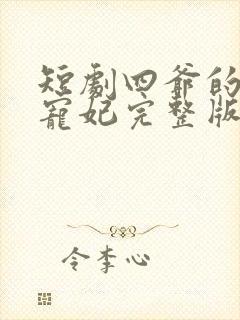 短劇四爺的
寵妃完整版
令李心